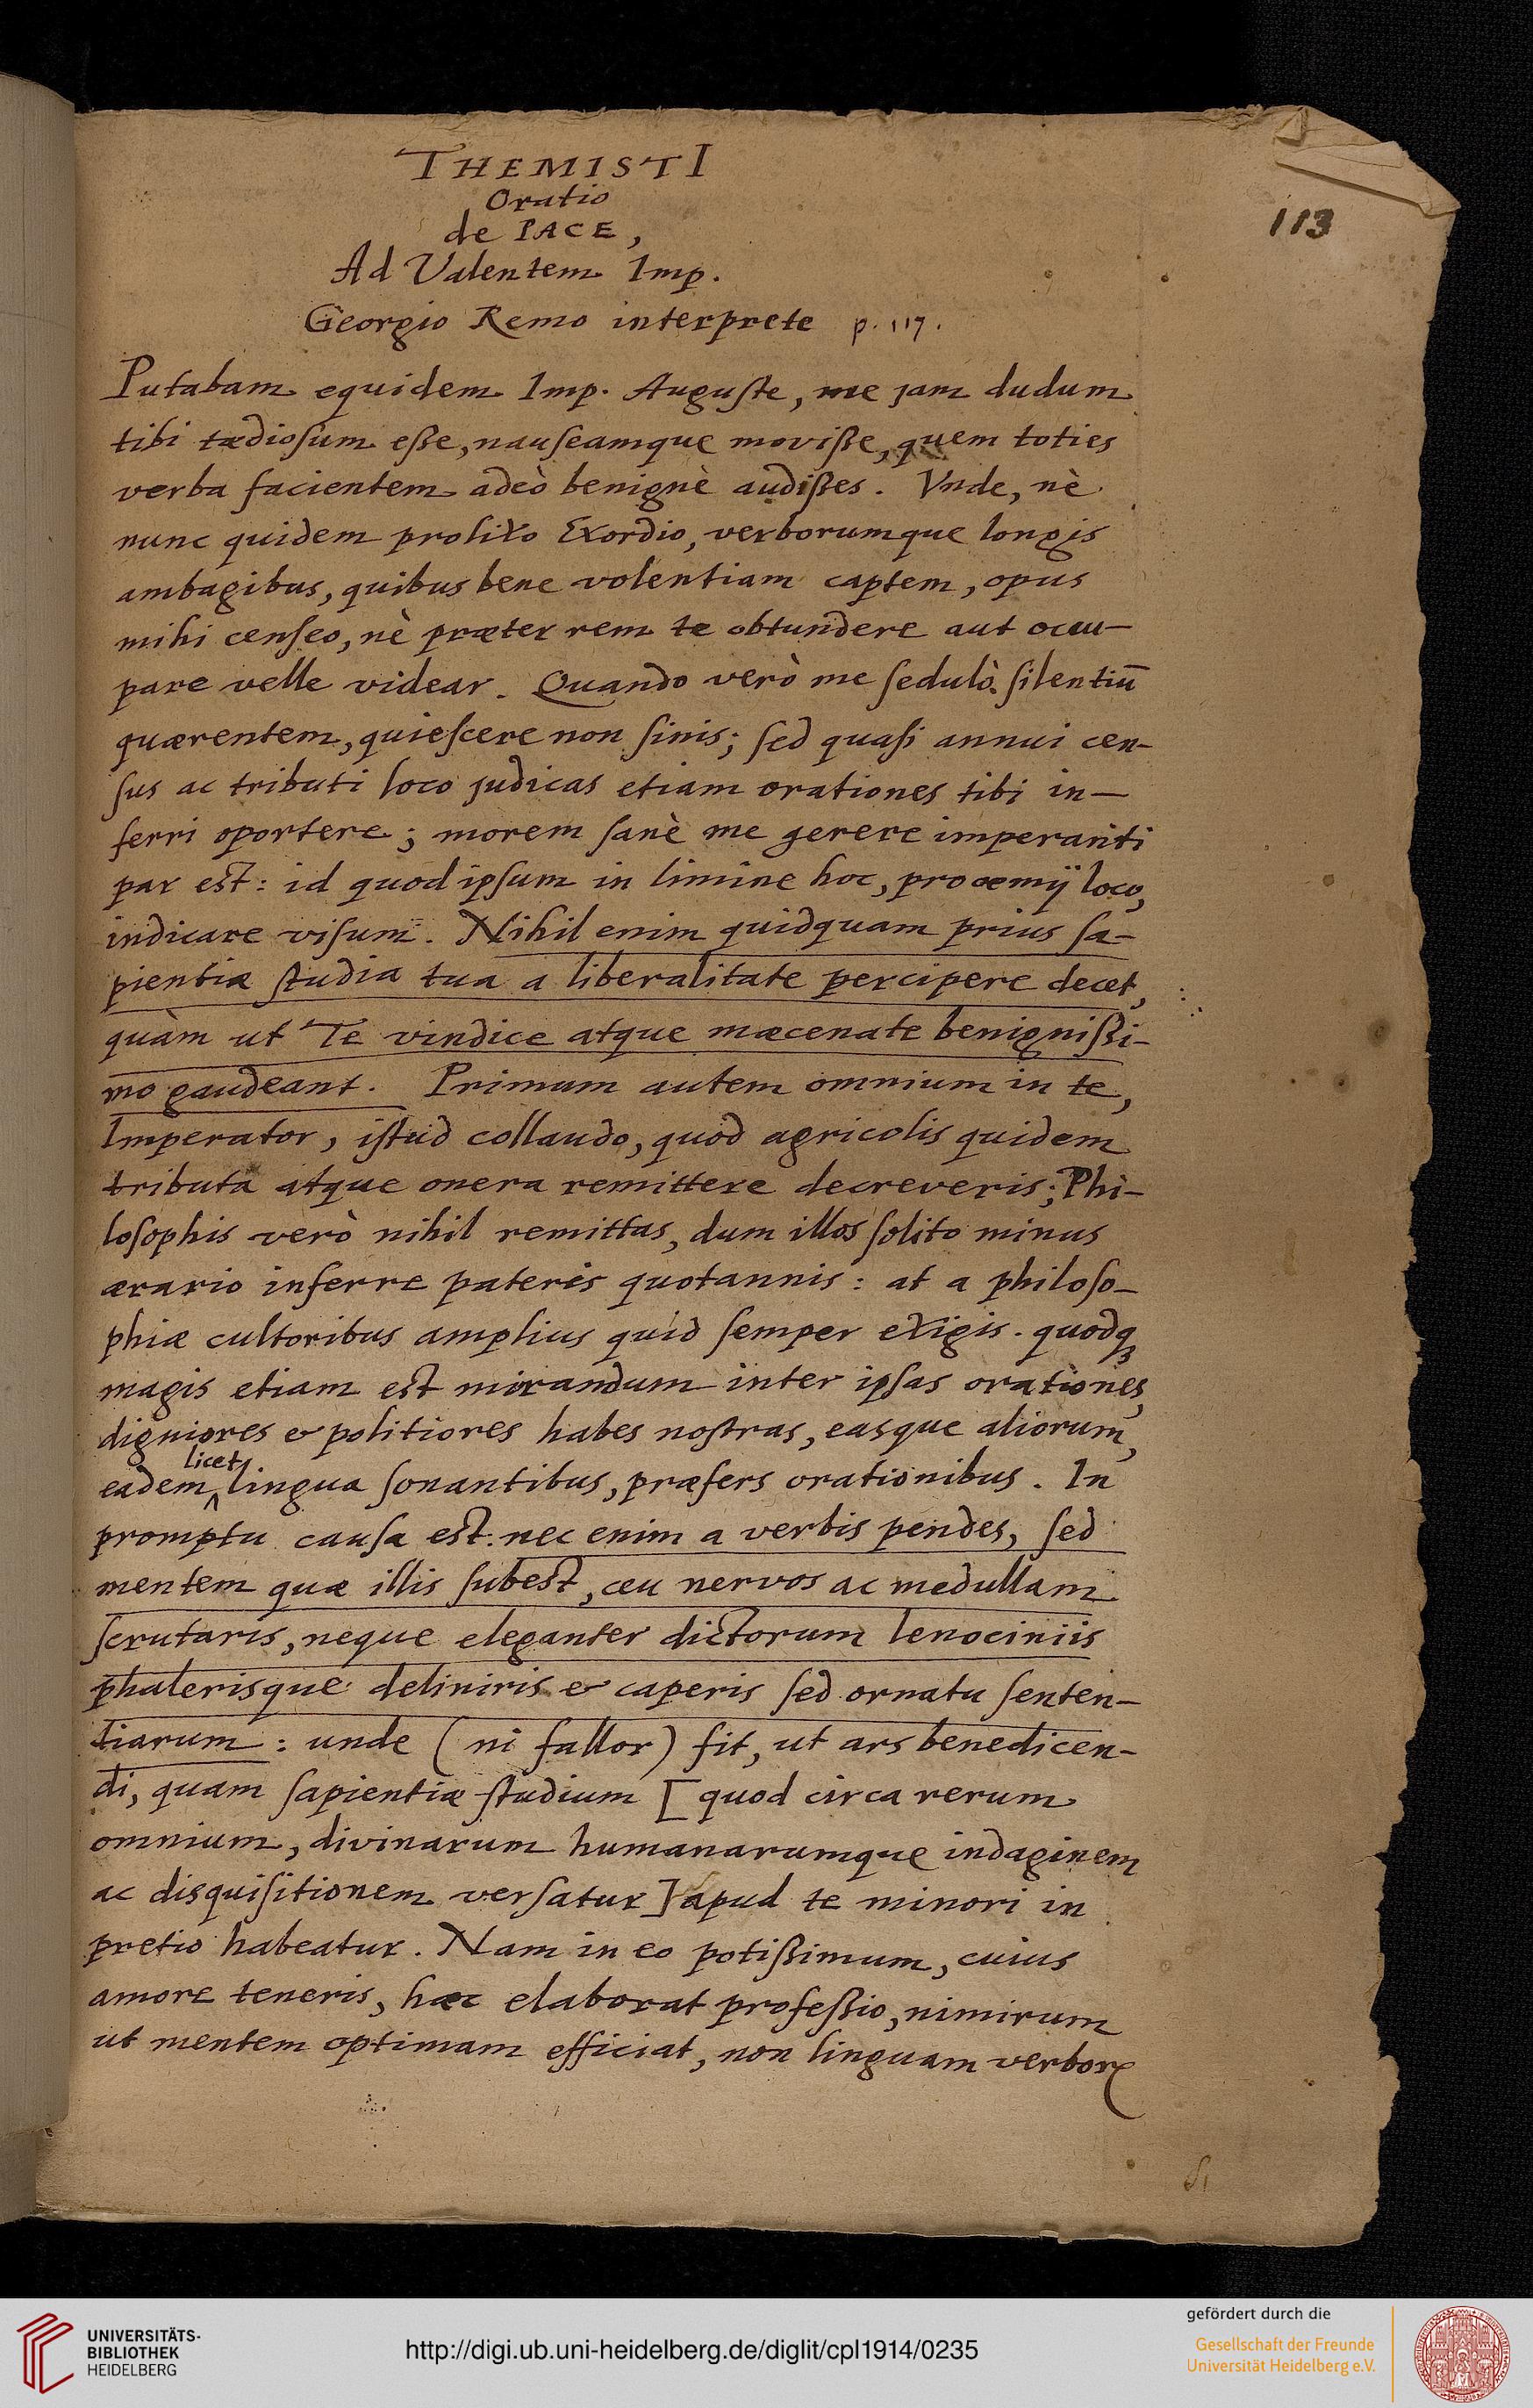 THEMISTI
Oratio
de PACE,
Ad Valentem Imp.
Georgio Remo interprete p. 117.
113
Putabam equidem Imp. Auguſte, me jam dudum
tibi tædioſum eße, nauſeamque moviße, quem toties
verba facientem adeò benignè audißes. Vnde, nè
nunc quidem prolixo Exordio, verborumque longis
ambagibus, quibus bene volentiam captem, opus
mihi cenſeo, nè præter rem te obtundere aut occu-
pare velle videar. Quando verò me ſedulò ſilentiū
quærentem, quieſcere non ſinis; ſed quaſi annui cen-
ſus ac tributi loco judicas etiam orationes tibi in-
ferri oportere; morem ſanè me gerere imperanti
par est: id quod ipſum in limine hoc, proœmij loco,
indicare viſum. Nihil enim quidquam prius ſa-
pientiæ ſtudia tua a liberalitate percipere decet,
quàm ut Te vindice atque mæcenate benignißi-
mo gaudeant. Primum autem omnium in te,
Imperator, iſtud collaudo, quod agricolis quidem
tributa atque onera remittere decreveris; Phi-
loſophis verò nihil remittas, dum illos ſolito minus
ærario inferre pateris quotannis: at a philoſo-
phiæ cultoribus amplius quid ſemper exigis. quodq;
magis etiam est mirandum inter ipſas orationes,
digniores & politiores habes noſtras, easque aliorum,
licet
eadem ‸ lingua ſonantibus, præfers orationibus. In
promptu cauſa est: nec enim a verbis pendes, ſed
mentem quæ illis ſubest, ceu nervos ac medullam
ſcrutaris, neque eleganter dictorum lenociniis
phalerisque deliniris & caperis ſed ornatu ſenten-
tiarum: unde (ni fallor) fit, ut ars benedicen-
di, quam ſapientiæ ſtudium [quod circa rerum
omnium, divinarum humanarumque indaginem
ac disquiſitionem verſatur] apud te minori in
pretio habeatur. Nam in eo potißimum, cuius
amore teneris, hæc elaborat profeßio, nimirum
ut mentem optimam efficiat, non linguam verborꝝ
UNIVERSITÄTS-
BIBLIOTHEK
HEIDELBERG
http://digi.ub.uni-heidelberg.de/diglit/cpl1914/0235
gefördert durch die
Gesellschaft der Freunde
Universität Heidelberg e.V.